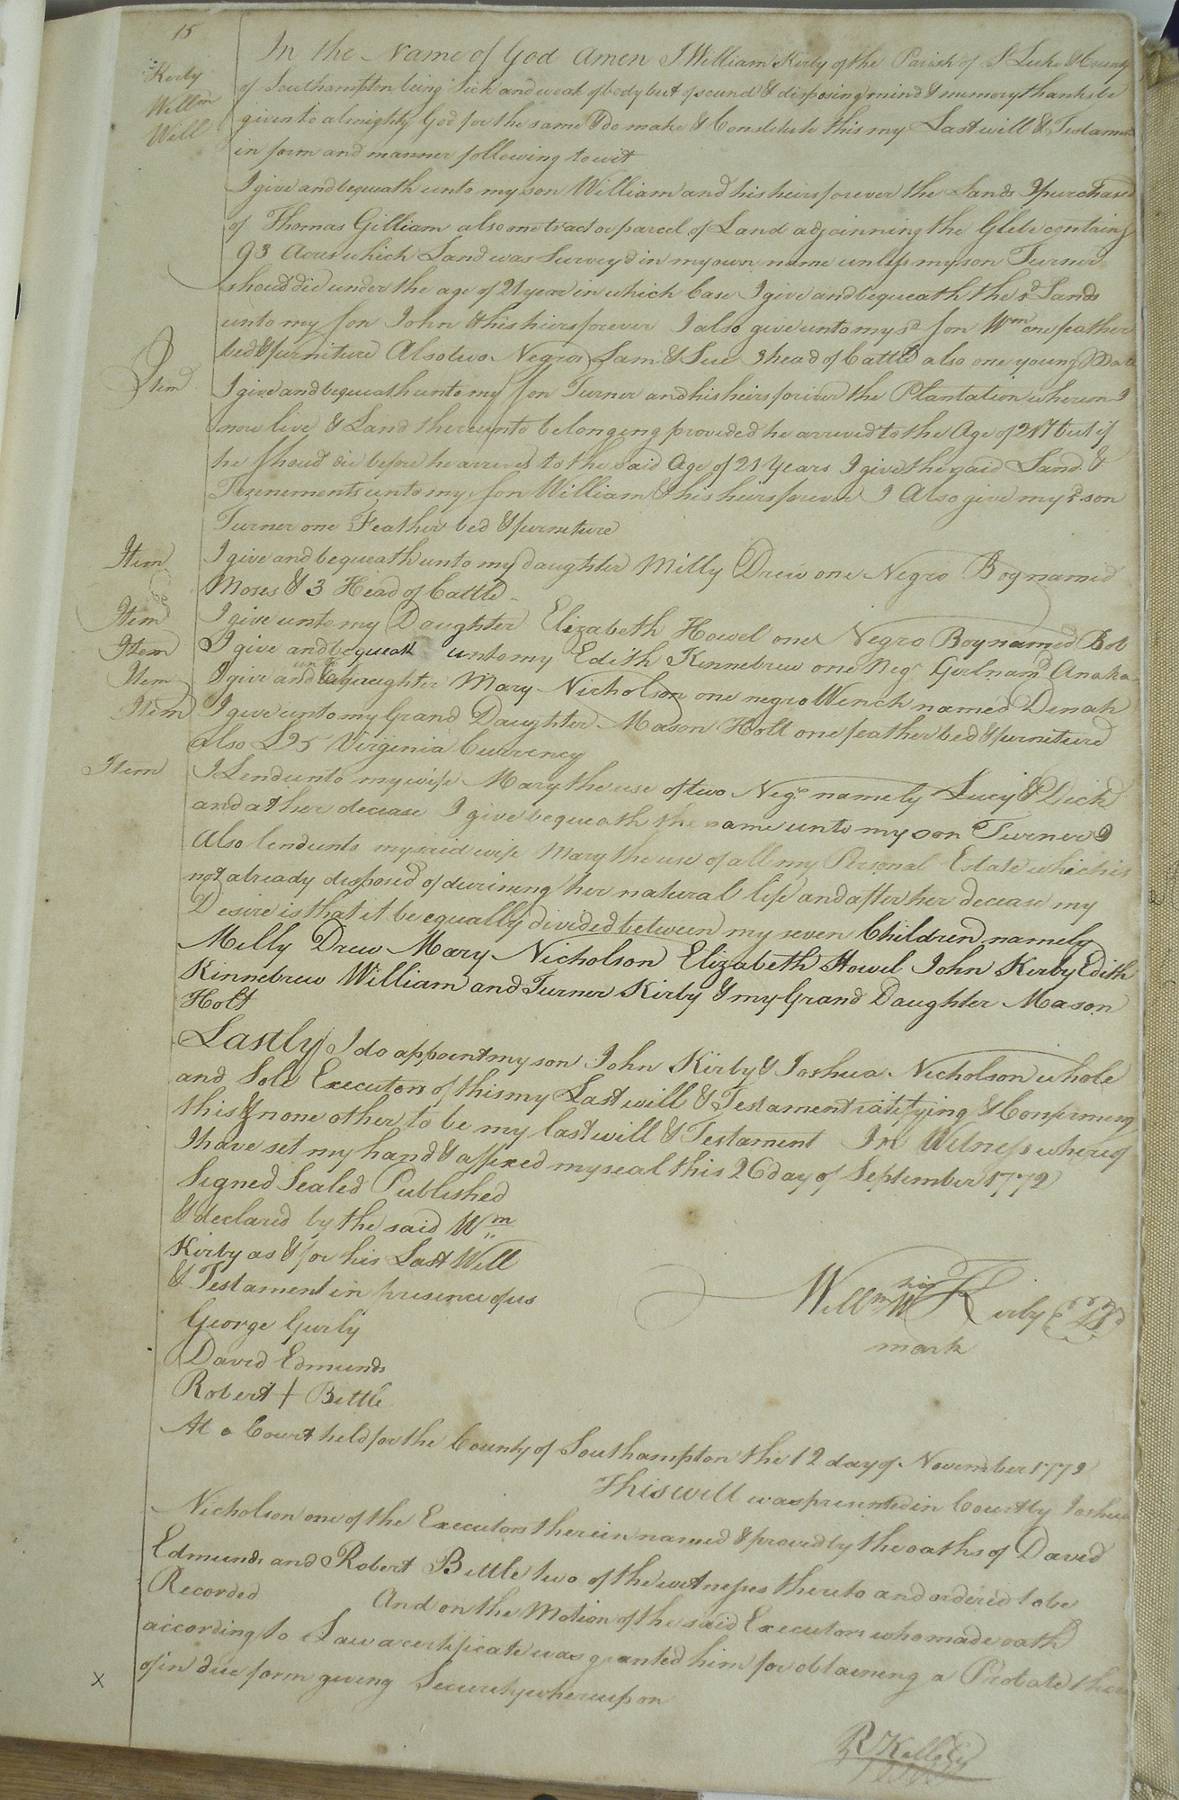 15
Kirby
Willm
Will
In the Name of God Amen I William Kirby of the Parish of St Luke & County
of Southampton being Sick and weak of body but of sound & disposing mind & memory thanks be
given to almighty God for the same & do make & Constitute this my Last will & Testament
in form and manner following to wit
I give and bequeath unto my son William and his heirs forever the Lands I purchased
of Thomas Gilliam also one tract or parcel of Land adjoinning the Glebe containg
93 Acres which Land was Survey'd in my own name unless my son Turner
should die under the age of 21 year in which Case I give and bequeath the sd Lands
unto my son John & his heirs forever I also give unto my sd son Wm one feather
bed & furniture Also two Negros Sam & Sue 3 head of Cattle also one young Mare
Item I give and bequeath unto my son Turner and his heirs forever the Plantation whereon I
now live & Land thereunto belonging provided he arrived to the Age of 21 but if
he should die before he arrives to the said Age of 21 Years I give the said Land &
Tenements unto my son William & his heirs forever I Also give my sd son
Turner one Feather bed & furniture
Item I give and bequeath unto my daughter Milly Drew one Negro Boy named
Moses & 3 Head of Cattle
Item I give unto my Daughter Elizabeth Howel one Negro Boy named Bob
Item I give and bequeath unto my Edith Kinnebrew one Neg Girl namd Anaka
Item I give and unto my Daughter Mary Nicholson one negro Wench named Denah
Item I give unto my Grand Daughter Mason Holt one feather bed & furniture
also £25 Virginia Currency
Item I Lend unto my wife Mary the use of two Negs namely Lucy & Dick
and at her decease I give bequeath the same unto my son Turner I
Also lend unto my said wife Mary the use of all my Personal Estate which is
not already disposed of durining her natural life and after her decease my
Desire is that it be equally divided between my seven Children namely
Milly Drew Mary Nicholson Elizabeth Howel John Kirby Edith
Kinnebrew William and Turner Kirby & my Grand Daughter Mason
Holt
Lastly I do appoint my son John Kirby & Joshua Nicholson whole
and Sole Executors of this my Last will & Testament ratifying & Confirming
this & none other to be my last will & Testament In Witness whereof
I have set my hand & affixed my seal this 26 day of September 1772
Signed Sealed Published
& declared by the said Wm
Kirby as & for his Last Will
& Testament in presence of us
George Gurly
David Edmunds
Robert + Bittle
Willm his W Kirby
mark
At a Court held for the County of Southampton the 12 day of November 1772
This will was presented in Court by Joshua
Nicholson one of the Executors therein named & proved by the oaths of David
Edmunds and Robert Bittle two of the witnesses thereto and ordered to be
Recorded And on the Motion of the said Executor who made oath
according to Law a certificate was granted him for obtaining a Probate there
of in due form giving Security whereupon
X